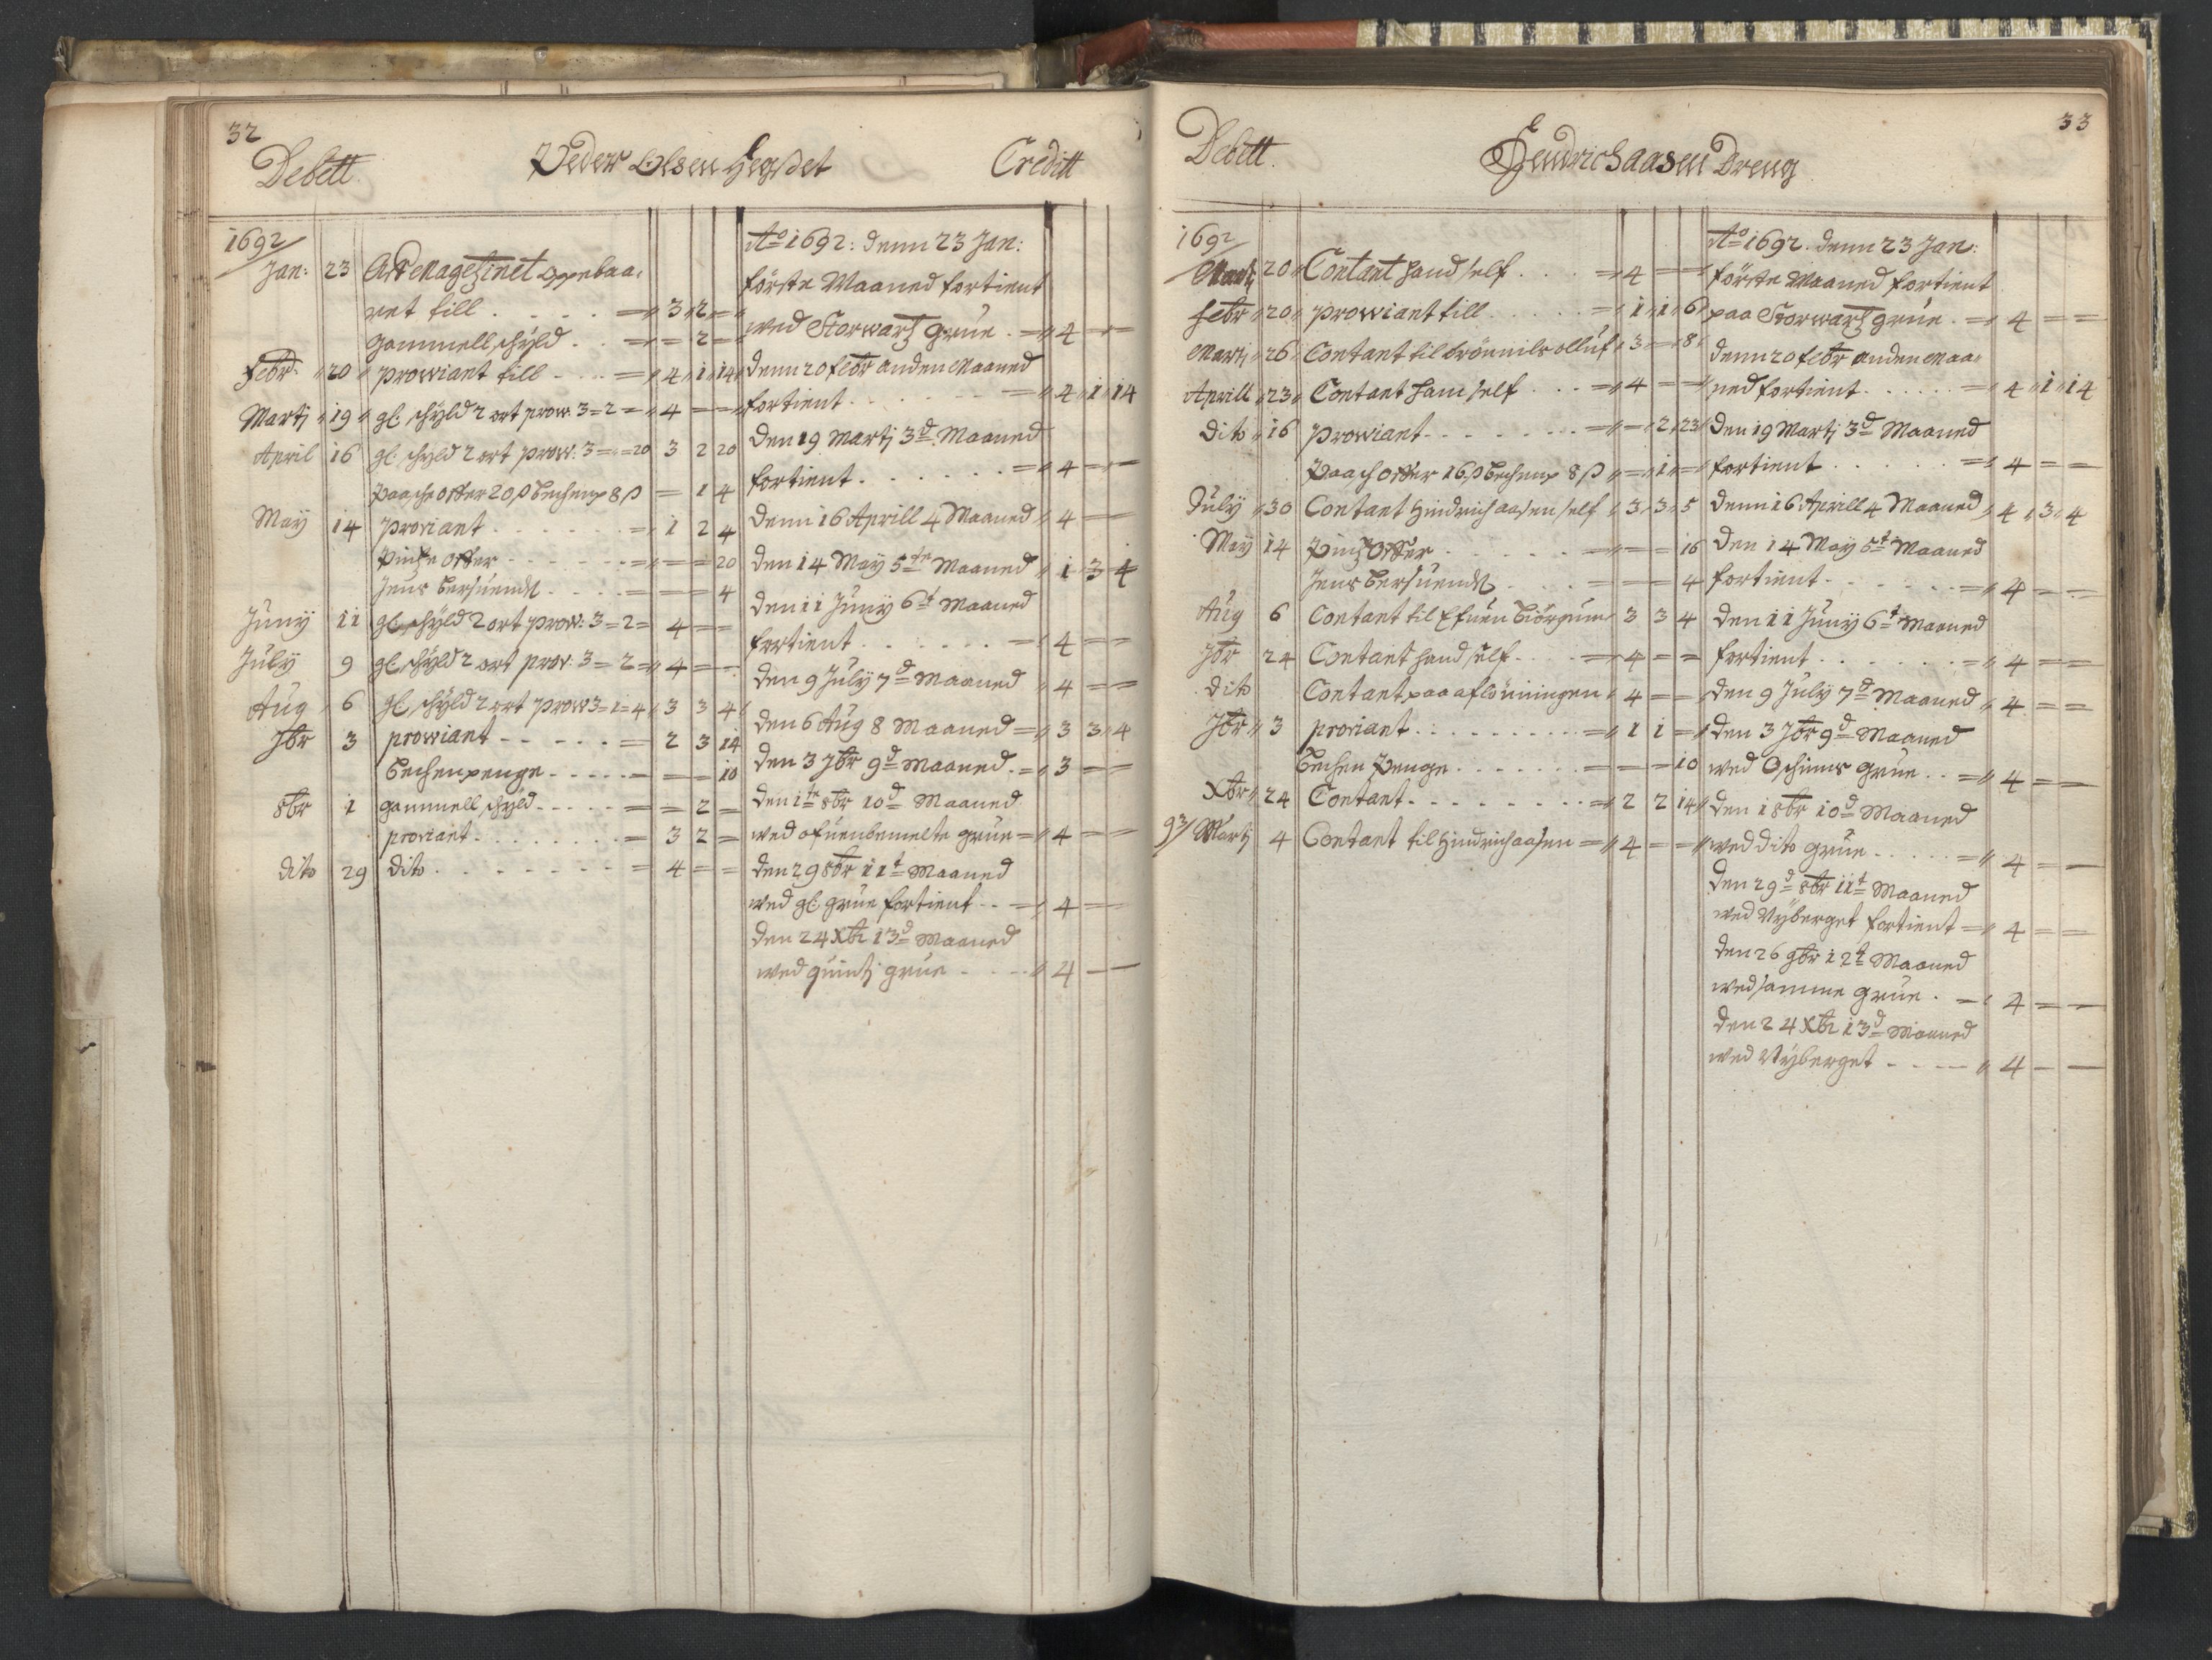 32
Debett Peder Olsen Hegset Creditt
1692
Jan: 23 Aff Magezinet oppebaa-
ret till . . . . = 3 2 =
gammell schyld . . = = 2 =
Febr. 20 prowiant till - . . . = 4 1 14
Martj 19 gl. schyld 2 ort prow: 3=2= 4 = =
April 16 gl. schyld 2 ort prow: 3= =20 3 2 20
Paasche offer 20 β bechenp 8 β = 1 4
May 14 proviant - - - - = 1 2 4
Pintze offer - - - - = = = 20
Jens bersuends - - - = = = 4
Juny 11 gl. schyld 2 ort prow: 3=2= 4 = =
July 9 gl. schyld 2 ort prov: 3=2= 4 = =
Aug 6 gl. schyld 2 ort prow 3=1=4 3 3 4
7br 3 prowiant - - - - = 2 3 14
bechenpenge - - - - = = = 10
8br 1 gammell schyld - - - - = = 2 =
proviant - . . . . . = 3 2 =
dito 29 dito - . . . . . = 4 = =
Ao 1692: denn 23 Jan:
förste Maaned fortient
wed Storwartz grue . = 4 = =
denn 20 febr anden Maaned
fortient - . . . . = 4 1 14
Den 19 Martj 3d Maaned
fortient . . . . . = 4 = =
Denn 16 Aprill 4 Maaned 4 = =
den 14 May 5te Maaned 1 3 4
den 11 Juny 6t Maaned
fortient . . . . . = 4 = =
den 9 July 7d Maaned 4 = =
den 6 Aug 8 Maaned = 3 3 4
den 3 7br 9d Maaned . = 3 = =
den 1te 8br 10d Maaned
wed ofuenbemelte grue = 4 = =
den 29 8br 11t Maaned
wed gl. grue fortient - - = 4 = =
den 24 Xbr 13d Maaned
wed quintj grue - . . - 4 — —
33
Debett Hendrichaasen Dreng
1692
20 Contant hand self . . . = 4 = =
febr 20 prowiant till . . . . = 1 1 6
Martj 26 Contant til 3 = 8
Aprill 23 Contant ham self . . . = 4 = =
dito 16 Prowiant - - - - = = 2 23
Paasch offer 16 β bechenp 8 β = 1 =
July 30 Contant Hindrichaasen self 3 3 5
May 14 Pintz offer - . . . . = = = 16
Jens bersuends . . . = = = 4
Aug 6 Contant til 3 3 4
7br 24 Contant hand self - . . = 4 = =
dito Contant paa aflönningen 4 = =
7br 3 proviant . . . . . = 1 1 =
bechen penge . . . . . = = = 10
Xbr 24 Contant - - - - - = 2 2 14
93/ Martj 4 Contant til Hindrichaasen = 4 = =
Ao 1692. denn 23 Jan:
förste Maaned fortient
paa Storwartz grue . = 4 = =
denn 20 febr anden Maa-
ned fortient . . . . = 4 1 14
Den 19 Martj 3d Maaned
fortient . . . . . = 4 = =
denn 16 Aprill 4 Maaned 4 3 4
den 14 May 5t Maaned
fortient - . . . . = 4 = =
den 11 Juny 6t Maaned
fortient . . . . . = 4 = =
den 9 July 7d Maaned 4 = =
den 3 7br 9d Maaned
wed grue . . = 4 = =
den 1 8br 10d Maaned
wed dito grue . . . . = 4 = —
den 29d 8br 11t Maaned
wed Nÿberget fortient = 4 = =
den 26 9br 12t Maaned
wed samme grue . = 4 = =
den 24 Xbr 13d Maaned
wed Nÿberget - . - — 4 — —